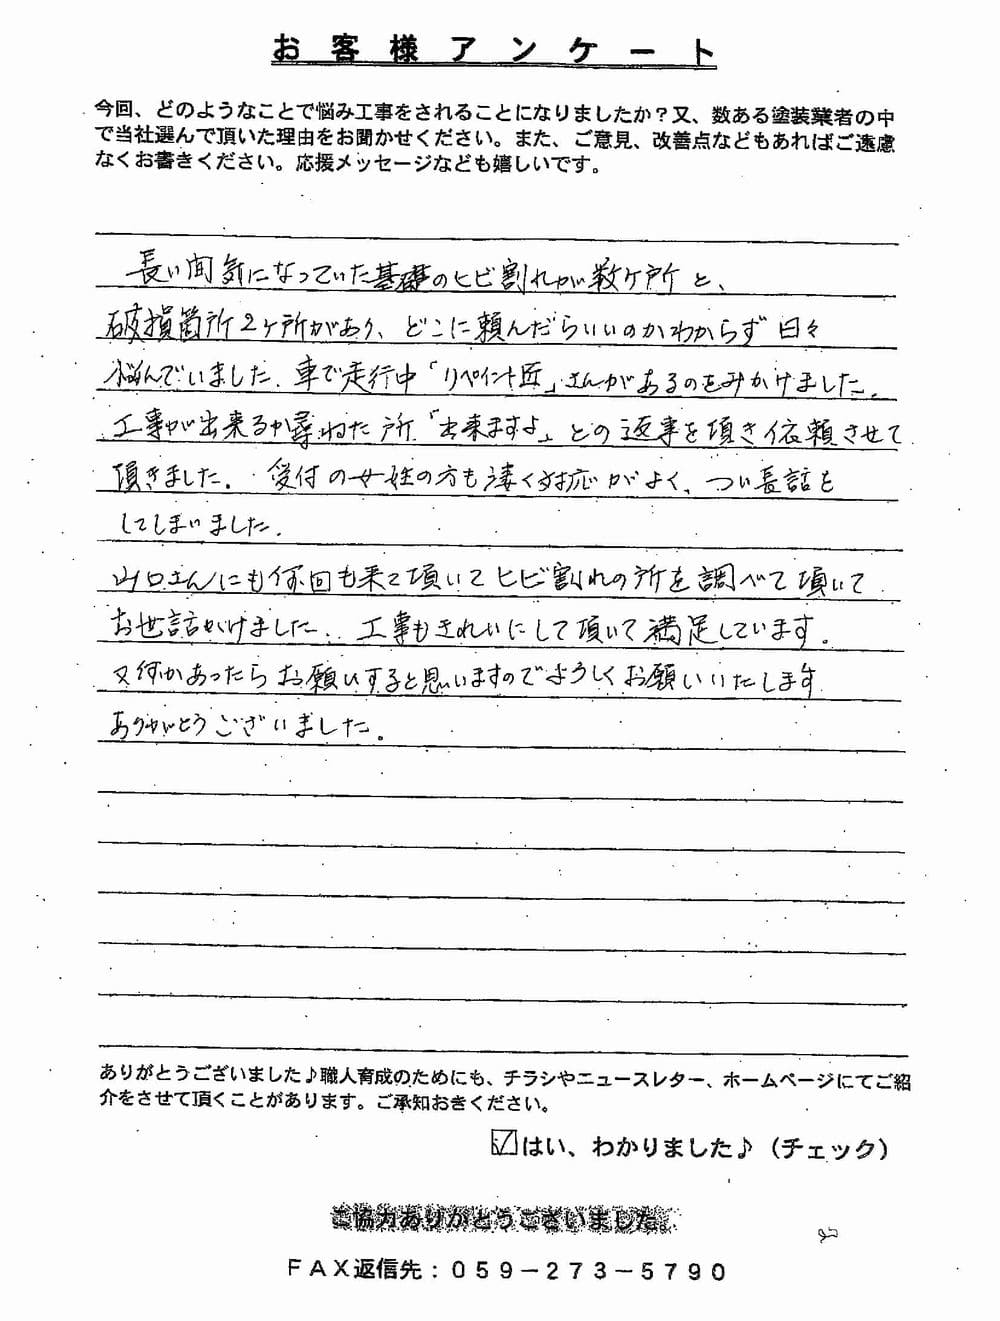 お客様アンケート
今回、どのようなことで悩み工事をされることになりましたか？又、数ある塗装業者の中
で当社選んで頂いた理由をお聞かせください。また、ご意見、改善点などもあればご遠慮
なくお書きください。応援メッセージなども嬉しいです。
長い間気になっていた基礎のヒビ割れが数ヶ所と、
破損箇所2ヶ所があり、どこに頼んだらいいのかわからず日々
悩んでいました。車で走行中「リペイント匠」さんがあるのをみかけました。
工事が出来るか尋ねた所「出来ますよ」との返事を頂き依頼させて
頂きました。受付の女姓の方も凄く対応がよく、つい長話を
してしまいました。
山口さんにも何回も来て頂いてヒビ割れの所を調べて頂いて
お世話かけました。工事もきれいにして頂いて満足しています。
又何かあったらお願いすると思いますのでよろしくお願いいたします
ありがとうございました。
ありがとうございました♪職人育成のためにも、チラシやニュースレター、ホームページにてご紹
介をさせて頂くことがあります。ご承知おきください。
☑はい、わかりました♪（チェック）
ご協力ありがとうございました。
FAX返信先：059－273－5790